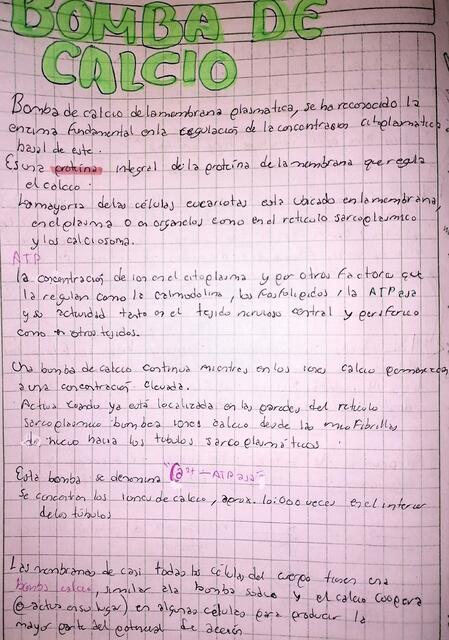 BOMBA DE
CALCIO
Bomba de calcio de la membrana plasmatica, se ha reconocido la
enzima fundamental en la regulacion de la concentracion citoplasmatica
basal de este.
Es una protina integral de la protina de la membrana que regula
el calcio.
La mayoria de las células eucariotas esta ubicado en la membrana,
en el plasma o en organelos como en el reticulo sarcoplasmico
y los calciosoma.
ATP
la concentración de ion en el citoplasma y por otros factora que
la regulan como la calmodolina, los fosfolipidos, la ATPasa
y su actividad tanto en el tejido nervioso central y periferico
como en otros tejidos.
Una bomba de calcio continua mientras en los iones calcio permanezcan
a una concentración elevada.
Activa cuando ya está localizada en las paredes del reticulo
sarcoplasmico bombea iones calcio desde las miofibrillas
de nuevo hacia los tubulos sarcoplasmáticos.
Esta bomba se denomina "Ca²⁺-ATPasa"
Se concentran los iones de calcio, aprox. 10.000 veces en el interior
de los túbulos
Las membranas de casi todas las células del cuerpo tienen una
bomba calcio, similar a la bomba sodio y el calcio coopera
(o actua en su lugar) en algunas células para producir la
mayor parte del potencial de acción.